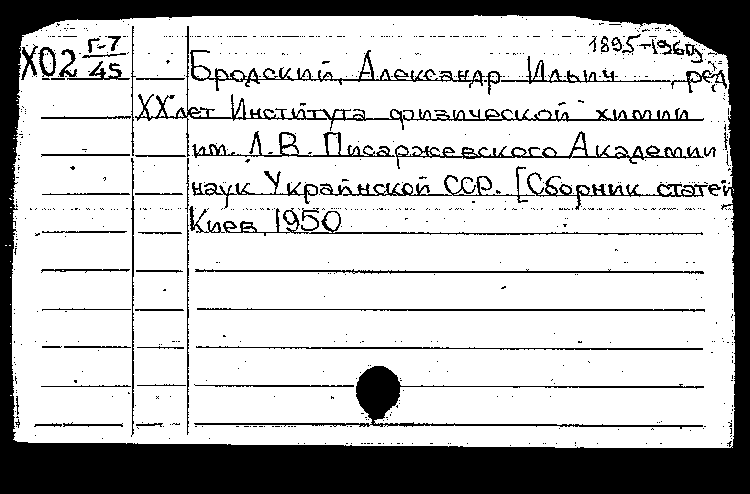 1895-1969
Х02 Г-7/45 Бродский, Александр Ильич, ред
XX лет Института физической химии
им. Л.В. Писаржевского Академии
наук Украинской ССР. [Сборник статей
Киев, 1950